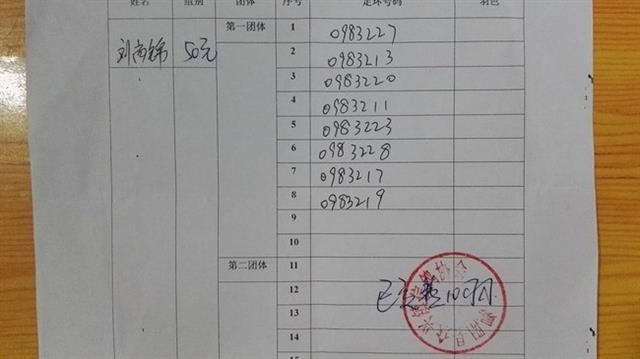 姓名 组别 团体 序号 足环号码 羽色
刘尚锦 50元 第一团体 1 0983227
2 0983213
3 0983220
4 0983211
5 0983223
6 0983228
7 0983217
8 0983219
9
10
第二团体 11
12
13
14